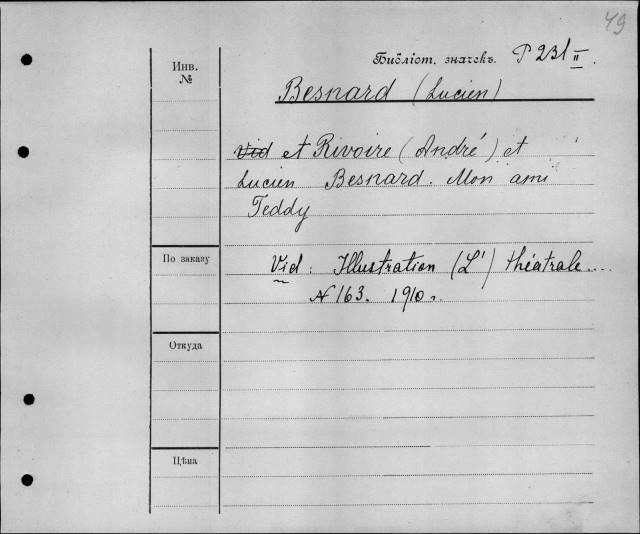 49
Библіот. значекъ. P 231 II.
Инв.
№
Besnard (Lucien)
Vid et Rivoire (André) et
Lucien Besnard. Mon ami
Teddy
По заказу
Vid: Illustration (L') théatrale....
N 163. 1910.
Откуда
Цѣна